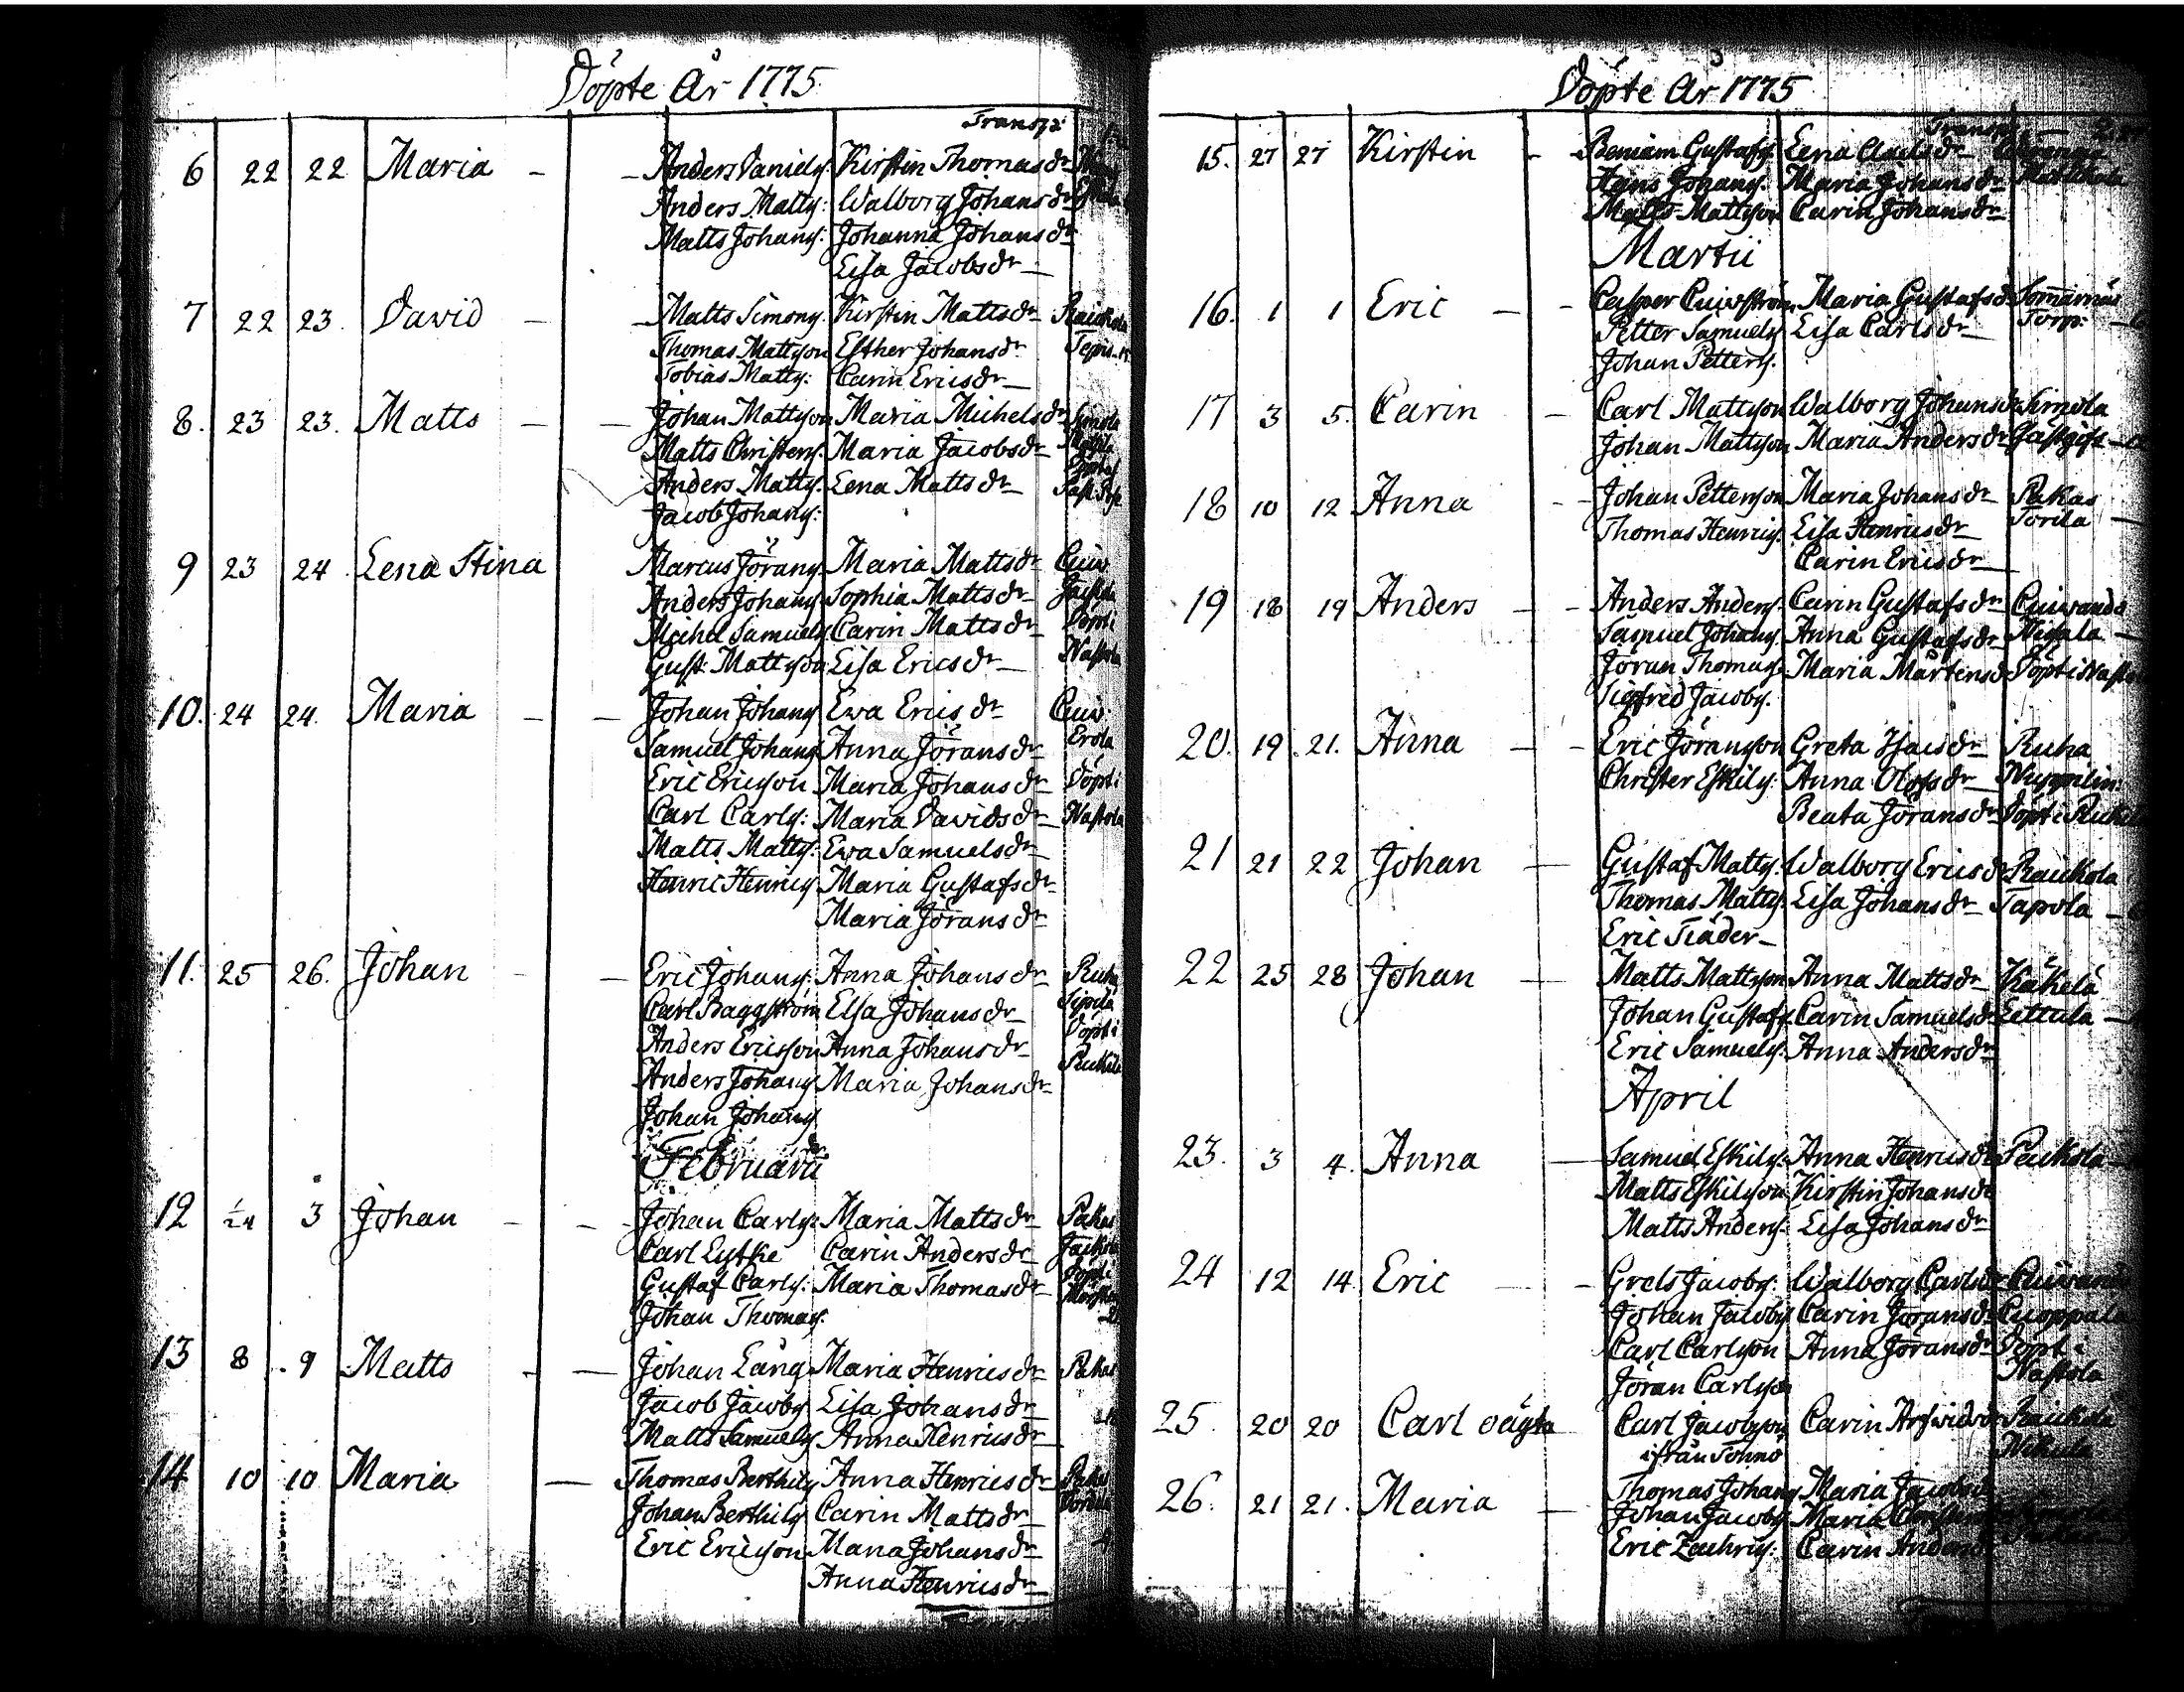 Döpte År 1775
Transp:
6 22 22 Maria - - Anders Daniels: Kirstin Thomasdr
Anders Matts: Walborg Johansdr
Matts Johans: Johanna Johansdr
Lisa Jacobsdr
7 22 23. David - - Matts Simons: Kirstin Mattsdr Raickola
Thomas Mattson Esther Johansdr
Tobias Matts: Carin Ericsdr
8. 23 23. Matts - - Johan Mattson Maria Michelsdr
Matts Christers: Maria Jacobsdr
Anders Matts: Lena Mattsdr
Jacob Johans:
9 23 24 Lena Stina Marcus Jörans: Maria Mattsdr Cuiv:
Anders Johans: Sophia Mattsdr
Michel Samuels: Carin Mattsdr Döpt i
Gust: Mattson Lisa Ericsdr Nastola
10. 24 24. Maria - - Johan Johans: Ewa Ericsdr Cuiv:
Samuel Johans: Anna Jöransdr Erola
Eric Ericson Maria Johansdr Döpt i
Carl Carls: Maria Davidsdr Nastola
Matts Matts: Ewa Samuelsdr
Henric Henrics: Maria Gustafsdr
Maria Jöransdr
11. 25 26. Johan - - Eric Johans: Anna Johansdr Ruha
Carl Baggström Elsa Johansdr Sipilä
Anders Ericsson Anna Johansdr Döpt i
Anders Johans: Maria Johansdr
Johan Johans:
Februarii
12 1/24 3 Johan - - Johan Carls: Maria Mattsdr Pakas
Carl Lythie Carin Andersdr
Gustaf Carls: Maria Thomasdr Döpt i
Johan Thomas:
13 8 9 Matts - - Johan Lång Maria Henricsdr Pakas
Jacob Jacobs: Lisa Johansdr
Matts Samuels: Anna Henricsdr
14 10 10 Maria - Thomas Berthils: Anna Henricsdr Pakas
Johan Berthils: Carin Mattsdr
Eric Ericson Maria Johansdr
Anna Henricsdr
Döpte År 1775
Transp:
15. 27 27 Kirstin - - Beniam Gustafs: Lena
Hans Johans: Maria Johansdr
Matts Mattson Carin Johansdr
Martii
16. 1 1 Eric - - Casper Cuivström Maria Gustafsdr Sommarnäs
Petter Samuels: Lisa Carlsdr Torp:
Johan Petters:
17 3 5. Carin - Carl Mattson Walborg Johansdr Simola
Johan Mattson Maria Andersdr Gästgift
18 10 12 Anna - Johan Petterson Maria Johansdr Pakas
Thomas Henrics: Lisa Henricsdr Torila
Carin Ericsdr
19 18 19 Anders - - Anders Anders: Carin Gustafsdr Cuivando
Samuel Johans: Anna Gustafsdr
Jöran Thomas: Maria Mårtensdr Döpt i Nasto
Siffred Jacobs:
20. 19 21. Anna - - Eric Jöransson Greta Isacsdr Ruha
Christer Eskils: Anna Olofsdr
Beata Jöransdr Döpt i
21 21 22 Johan - Gustaf Matts: Walborg Ericsdr Raickola
Thomas Matts: Lisa Johansdr Tapola
Eric Tiäder
22 25 28 Johan - Matts Mattson Anna Mattsdr Käkelä
Johan Gustafs: Carin Samuelsdr Eettula
Eric Samuels: Anna Andersdr
April
23. 3 4. Anna - Samuel Eskils: Anna Henricsdr
Matts Eskilson Kirstin Johansdr
Matts Anders: Lisa Johansdr
24 12 14 Eric - - Grels Jacobs: Walborg Carlsdr
Johan Jacobs: Carin Jöransdr Cuoppala
Carl Carlson Anna Jöransdr Döpt i
Jöran Carlson Nastola
25. 20 20 Carl oägta Carl Jacobson Carin Arfwidsdr Raickola
ifrån
26. 21 21. Maria - Thomas Johans: Maria Jacobsdr
Johan Jacobs: Maria
Eric Zachris: Carin